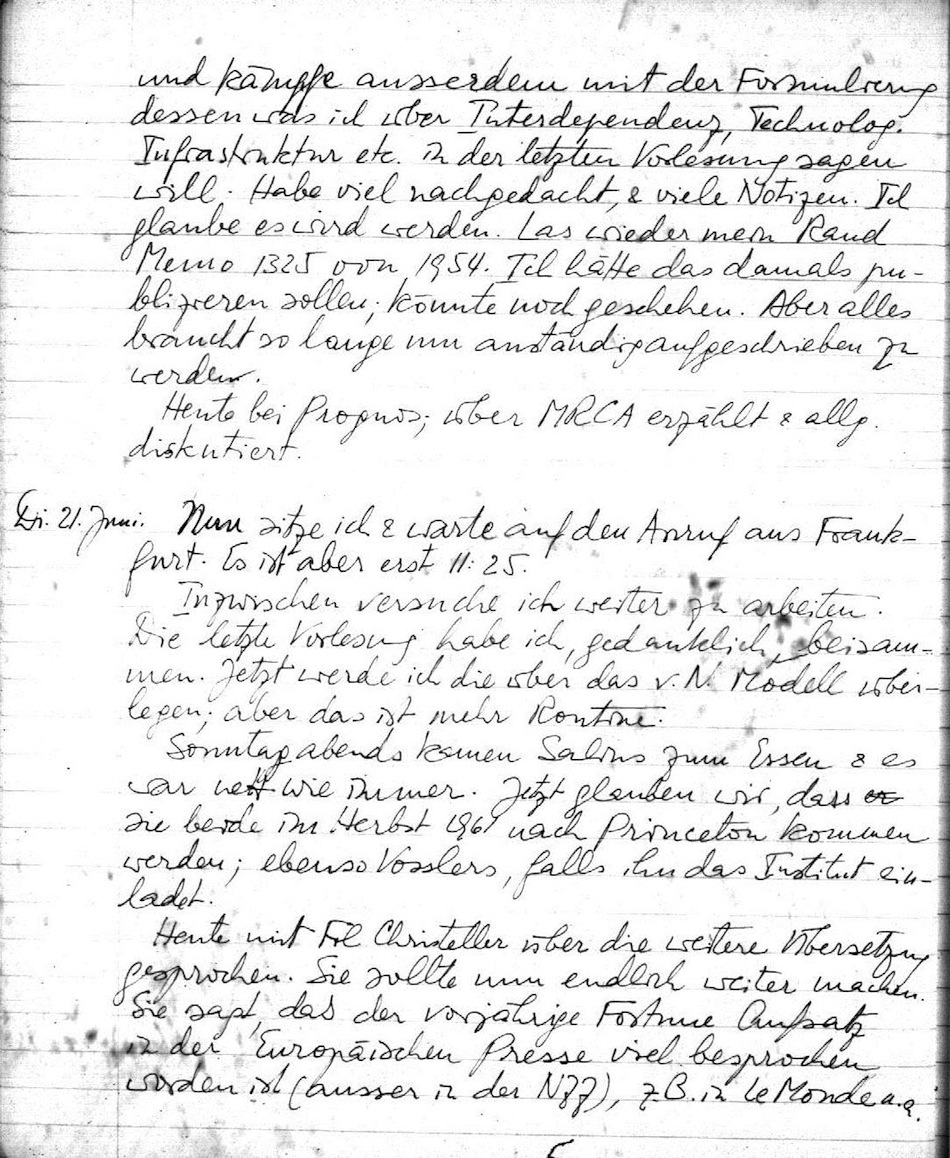 und kämpfe ausserdem mit der Formulierung
dessen was ich über Interdependenz, Technolog.
Infrastruktur etc. in der letzten Vorlesung sagen
will. Habe viel nachgedacht, & viele Notizen. Ich
glaube es wird werden. Las wieder mein Rand
Memo 1325 von 1954. Ich hätte das damals pu-
blizieren sollen; könnte noch geschehen. Aber alles
braucht so lange um anständig aufgeschrieben zu
werden.
Heute bei Prognos; über MRCA erzählt & allg.
diskutiert.
Di. 21. Juni. Nun sitze ich & warte auf den Anruf aus Frank-
furt. Es ist aber erst 11:25.
Inzwischen versuche ich weiter zu arbeiten.
Die letzte Vorlesung habe ich, gedanklich, beisam-
men. Jetzt werde ich die über das v. N. Modell über-
legen; aber das ist mehr Routine.
Sonntag abends kamen Salins zum Essen & es
war nett wie immer. Jetzt glauben wir, dass er
sie beide im Herbst 1961 nach Princeton kommen
werden; ebenso Vosslers, falls ihn das Institut ein-
ladet.
Heute mit Frl Christeller über die weitere Übersetzung
gesprochen. Sie sollte nun endlich weiter machen.
Sie sagt, das der vorjährige Fortune Aufsatz
in der Europäischen Presse viel besprochen
worden ist (ausser in der NZZ), z.B. in Le Monde u.a.